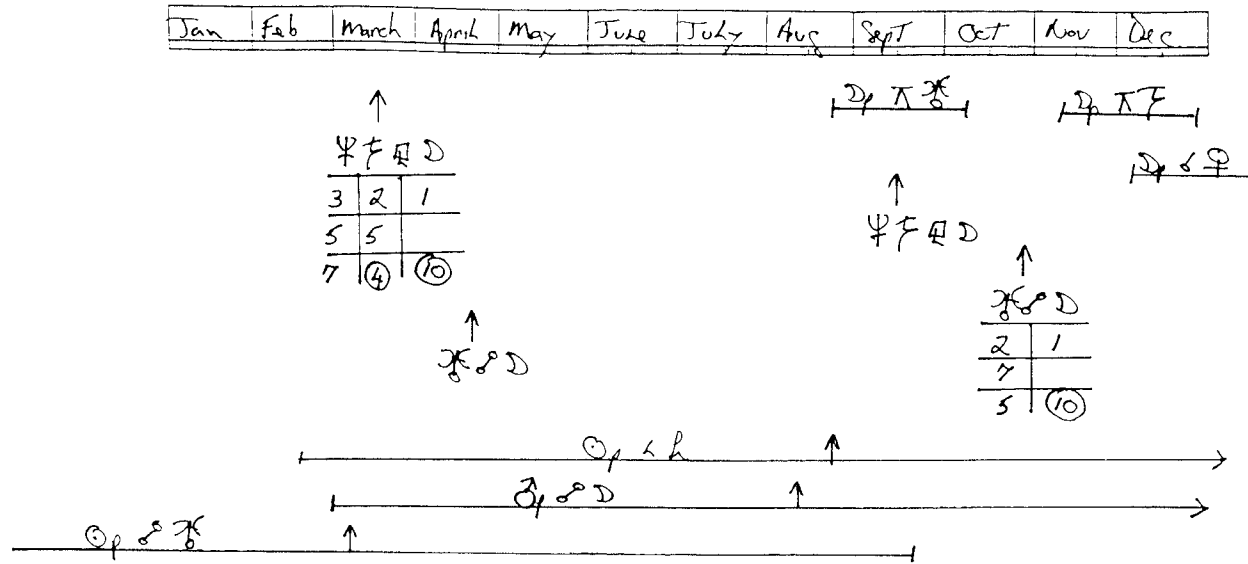 Jan Feb March April May June July Aug Sept Oct Nov Dec
☽p ⚻ ♅
☽p ⚻
☽p ☌ ♀
♆ ☽
3 2 1
5 5
7 4 10
♆ ☽
♅ ☍ ☽
♅ ☍ ☽
2 1
7
5 10
☉p ∠ ♄
♂p ☍ ☽
☉p ☍ ♅